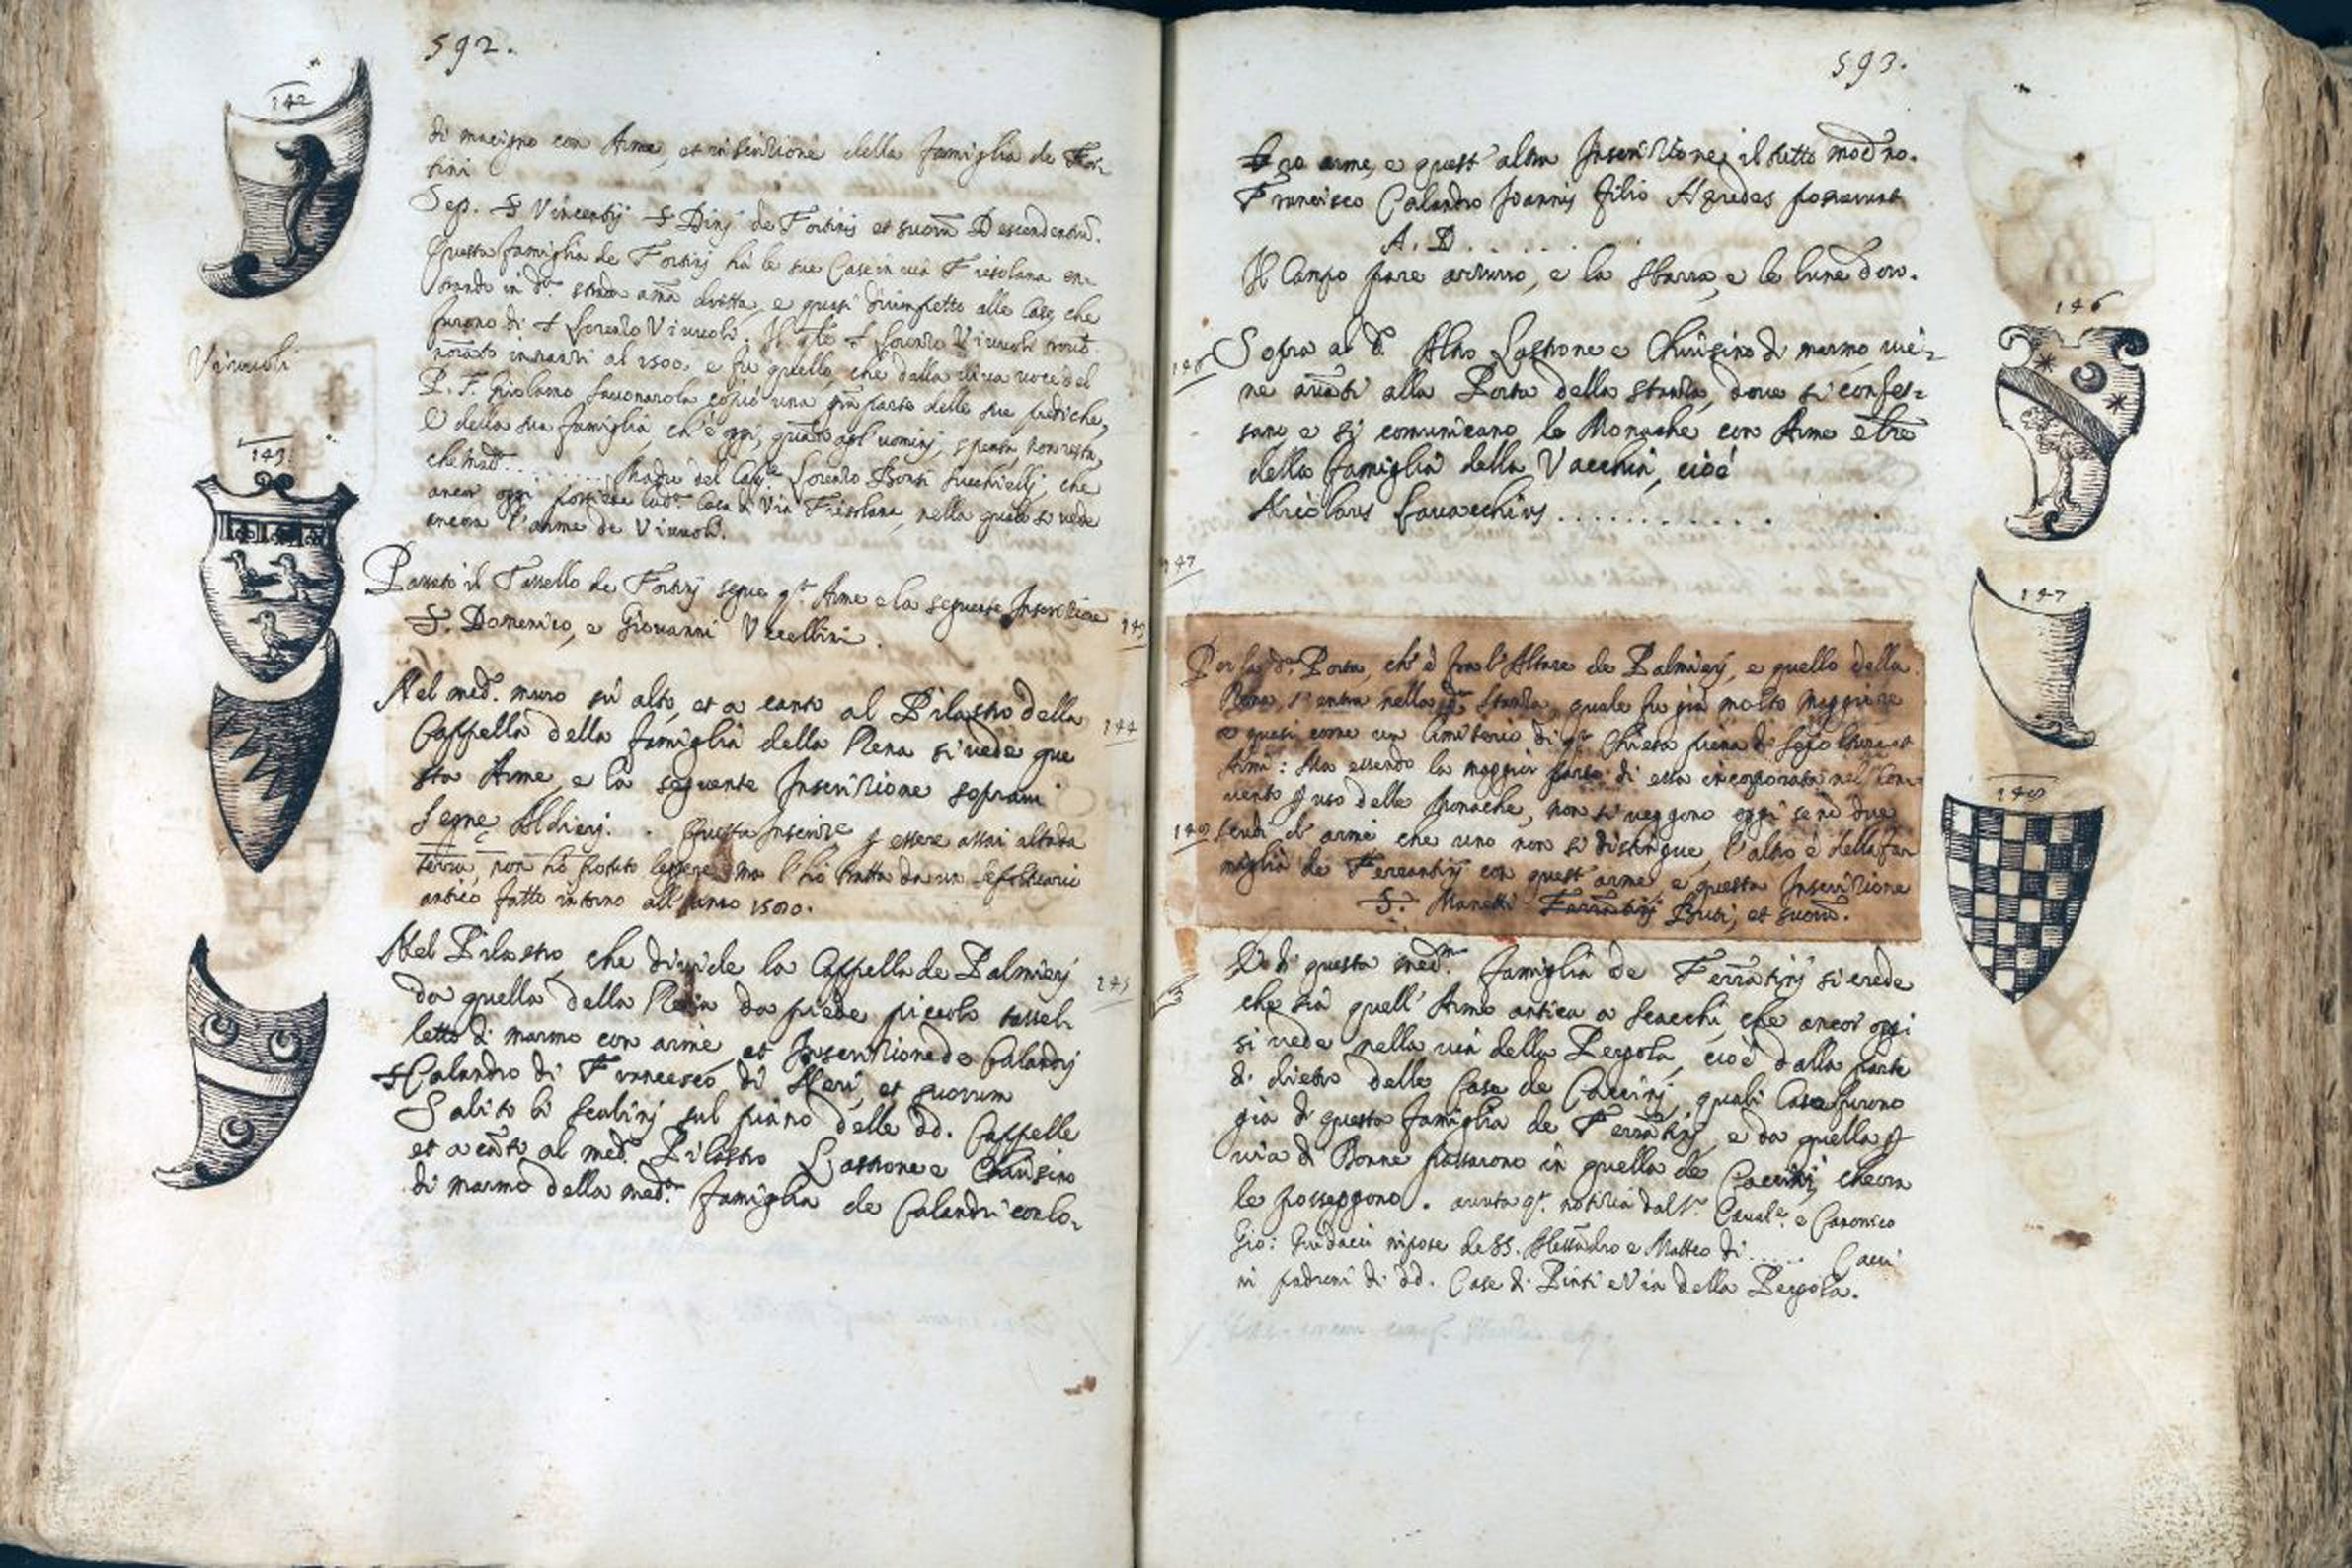 592.
142
di macigno con Arme, et inscrizione della famiglia de For-
tini
Sep. S Vincentij S Dinj de Fortinis et suorũ Descendentiũ.
Questa famiglia de Fortinj hà le sue Case in via Fiesolana en-
trando in d.ª strada a mã dritta, e quasi dirimpetto alle Case che
furono di S Lorenzo Viuuoli. Il qle S Lorenzo Viuuoli
innanzi al 1500. e fu quello, che dalla viva voce del
P. F. Girolamo Sauonarola copiò una grã parte delle sue prediche,
e della sua famiglia, ch'è oggi, quãto agl'uominj, spenta, non resta,
che Mad. . . . . . . . . Madre del Cap.ⁿᵒ Lorenzo Bonsi Succhiellj, che
ancor oggi possiede la d.ª Casa di Via Fiesolana, nella quale si vede
ancora l'arme de Viuuoli.
Viuuoli
143
Passato il Tassello de Fortinj segue q.ᵗᵃ Arme e la seguente Inscrizione
S. Domenico, e Giovanni Vccellini.
143
Nel med.º muro sù alto, et a canto al Pilastro della
Cappella della famiglia della Rena si vede que
sta Arme, e la seguente Inscrizione sopravi
Segne Aldierj. . Questa Inscrizᵉ p essere assai alta da
terra, non hò potuto leggere, ma l'hò tratta da un Sepoltuario
antico fatto intorno all'anno 1500.
144
Nel Pilastro, che divide la Cappella de Palmierj
da quella della Rena da piede piccolo tassel-
letto di marmo con arme, et Inscrizione de Calandrj
S Calandro di Francesco di Neri, et suorum
145
Salito li scalinj sul piano delle dd. Cappelle
et a cãto al med.º Pilastro Lastrone e Chiusino
di marmo della med.ª famiglia de Calandri con lo-
593.
ro arme, e quest'altra Inscrizione, il tutto modno.
Francisco Calandro Joannis filio Heredes posuerunt
A. D. . . . . . .
Il Campo pare azzurro, e la sbarra, e le lune d'oro.
146
146
Sopra al d.º Altro Lastrone e Chiusino di marmo vie-
ne auãti alla Porta della stanza, dove si confes-
sano e si comunicano le Monache con Arme
della famiglia della Vacchia, cioè
Nicolaus Lauacchius . . . . . . . . . . .
147
147
148
Per la d.ª Porta, ch'è fra l'Altare de Palmierj, e quello della
Rena, s'entra nella d.ª Stanza, quale fu già molto maggiore
e quasi come un Cimiterio di q.ᵗᵃ Chiesa piena di Sepolture et
Armi: Ma essendo la maggior parte di essa incorporata nel Con-
uento p uso delle Monache, non si veggono oggi se nõ due
scudi d'arme che uno non si distingue, l'altro è della fa-
miglia de Ferrantinj con quest'arme, e questa Inscrizione
S. Manetti Ferrãtinj Buti, et suorũ.
E di questa med.ᵐᵃ famiglia de Ferrãtinj si crede
che sia quell'Arme antica a scacchi, che ancor oggi
si vede nella via della Pergola, cioè dalla parte
di dietro delle Case de Caccinj, quali Case furono
già di questa famiglia de Ferrãtinj, e da quella p
via di Donne passarono in quella de Caccinj, che ora
le posseggono. avuta q.ᵗᵃ notizia dal S.ʳ Caval.ᵉ e Canonico
Gio: Guidacci nipote de SS. Alessãdro e Matteo di . . . . . Cacci
ni padroni di dd. Case di Pinti e Via della Pergola.